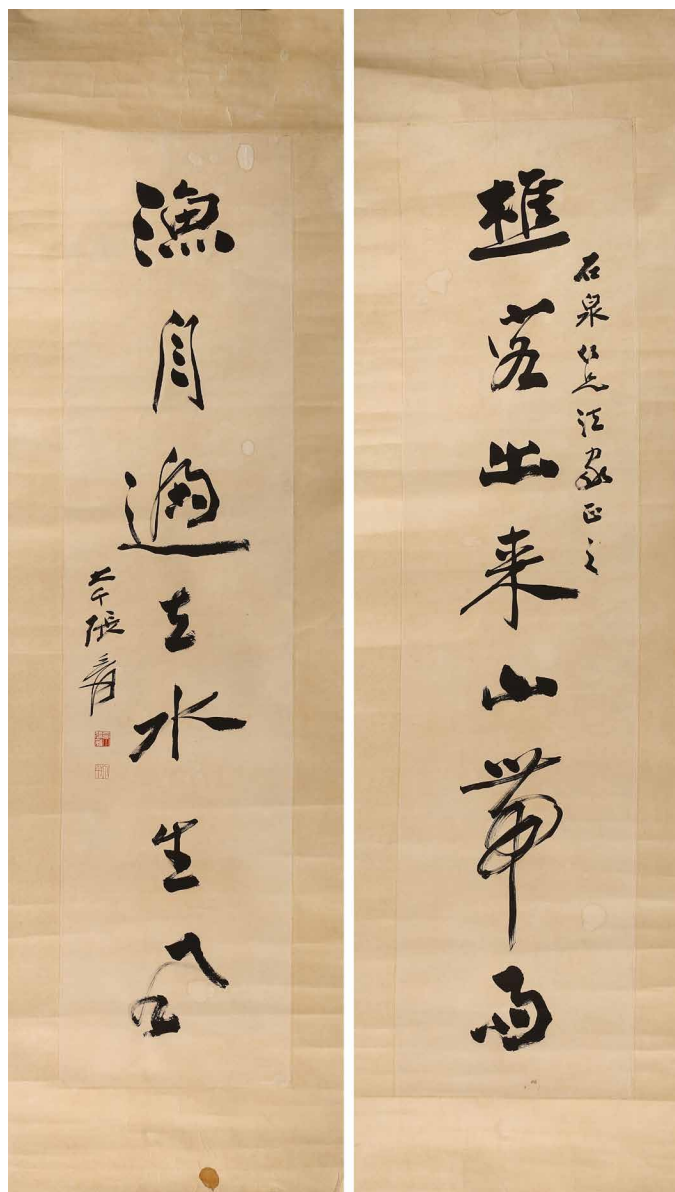 樵若出来山帶雨
石泉仁兄法家正之
漁舟過去水生風
大千張爰